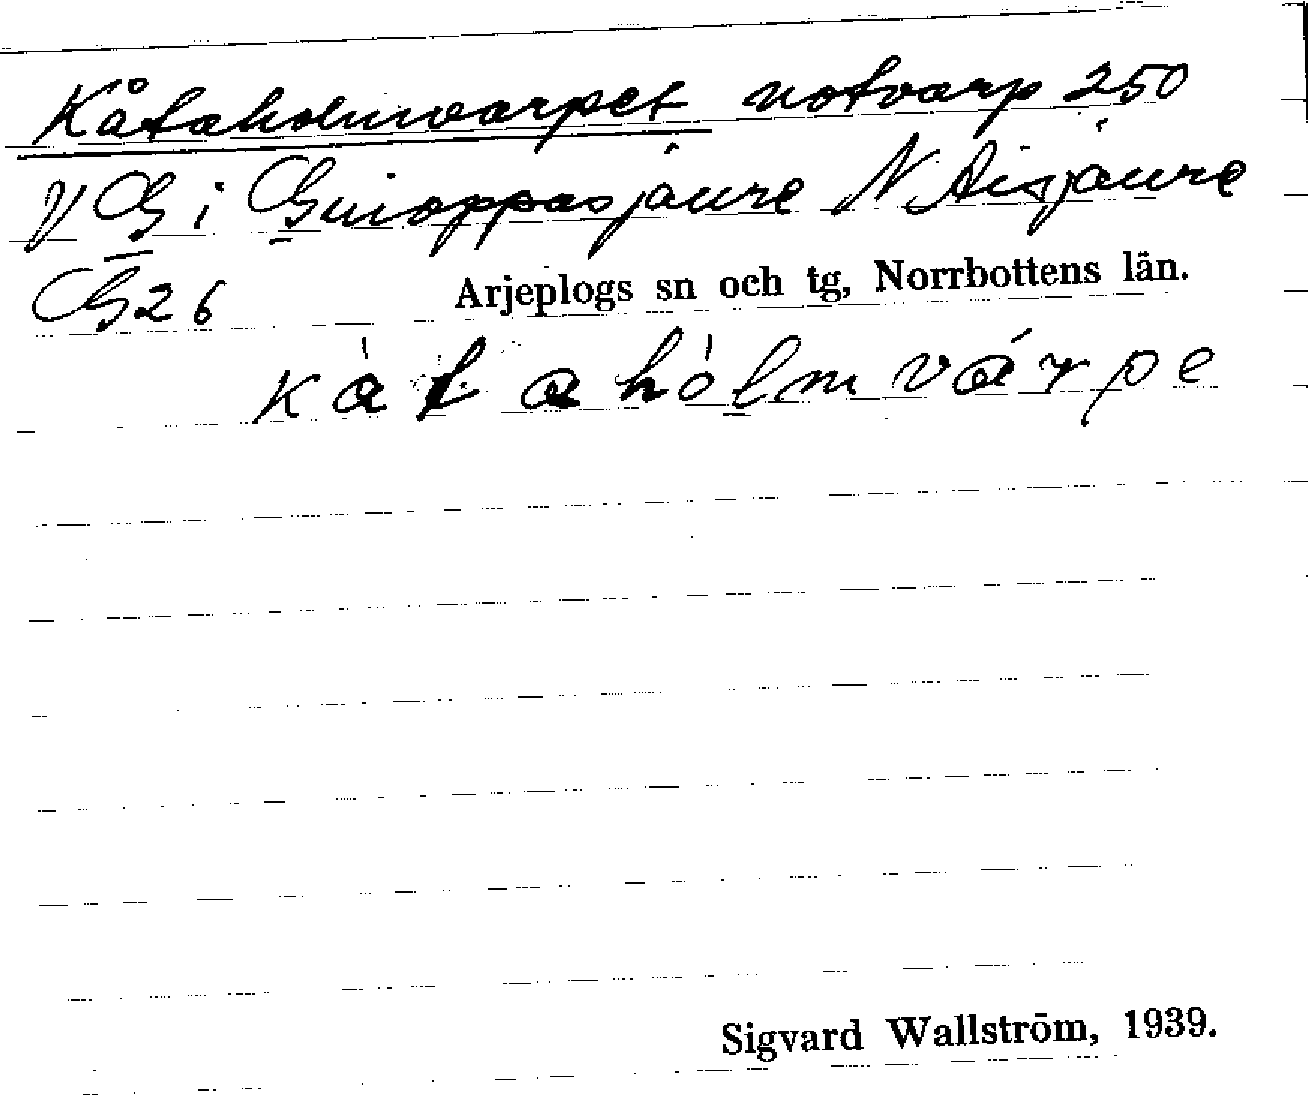 Kåtaholmvarpet notvarp 250
V G i Guioppasjaure N Aisjaure
G26 Arjeplogs sn och tg, Norrbottens län.
kàtahòlmvárpe
Sigvard Wallström, 1939.